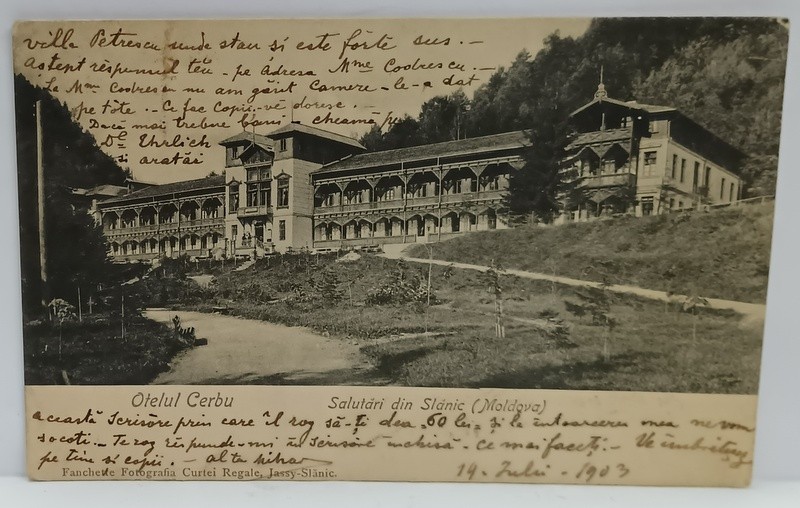 villa Petrescu unde stau si este fórte sus. —
Astept respunsul tĕu - pe adresa Mme Codrescu. —
La Mme Codrescu nu am găsit camere - le-a dat
pe tóte. - Ce fac copii - vĕ doresc. —
Dacă mai trebue bani - cheamă pe
Dl Ehrlich
si aratăi
Oţelul Cerbu
Salutări din Slănic (Moldova)
această scrisóre prin care îl rog să-ţi dea 60 lei - şi la întoarcerea mea ne vom
socoti. - Te rog rĕspunde-mi în scrisóre închisă. - Ce mai faceţi. - Vĕ îmbrăţişez
pe tine si copii. - al tĕu
Fanchette Fotografia Curtei Regale, Jassy-Slănic.
19. Iulii - 1903